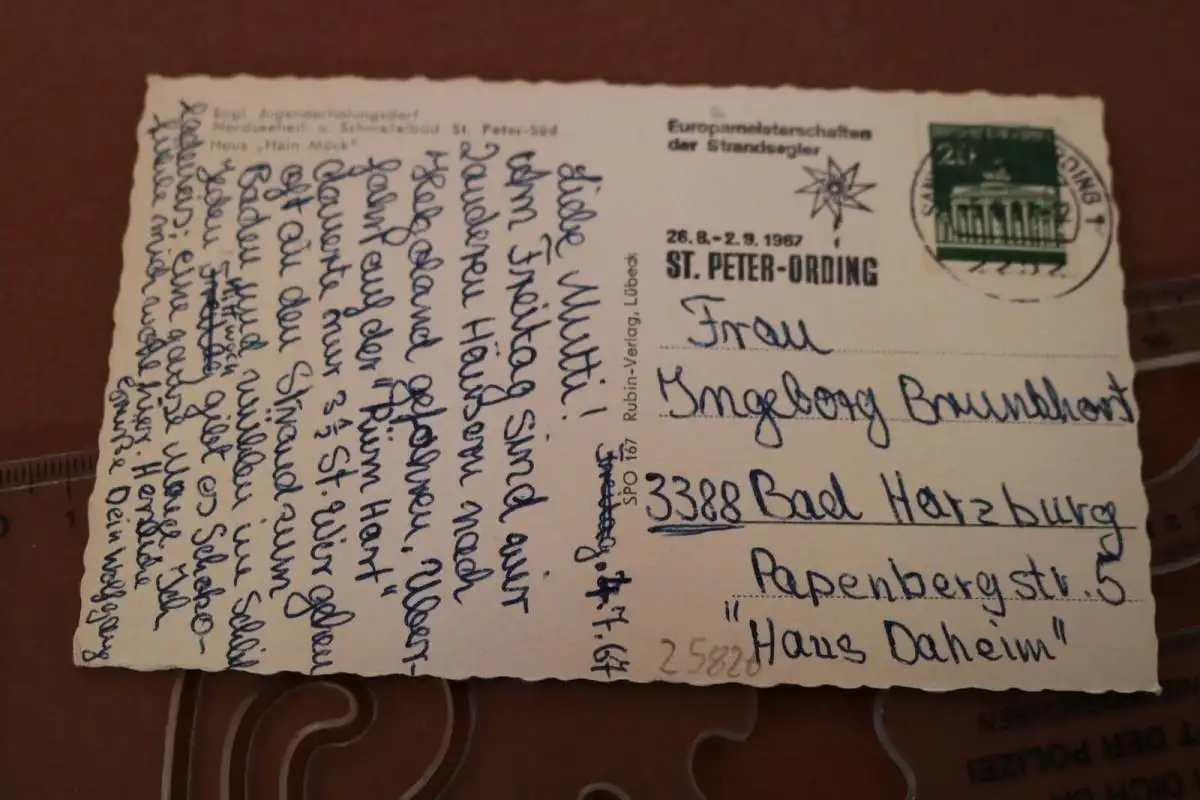 Evgl. Jugenderholungsdorf
Nordseeheil- u. Schwefelbad St. Peter-Süd
Haus „Hein Mück"
Europameisterschaften
der Strandsegler
26.8.-2.9.1967
ST. PETER-ORDING
20
Rubin-Verlag, Lübeck
SPO 167
Frau
Ingeborg Brunkhorst
3388 Bad Harzburg
Papenbergstr. 5
"Haus Daheim"
25820
7.67
Liebe Mutti!
Am Freitag sind wir
2 anderen Häusern nach
Helgoland gefahren. Über-
fahrt auf der "Rüm Hart"
dauerte nur 3 1/2 St. Wir gehen
oft an den Strand zum
Baden und wühlen im Schlick
Jeden Mittwoch gibt es Schoko-
ladeneis; eine ganze Menge Ich
fühle mich wohl hier. Herzliche
Grüße Dein Wolfgang
T DER POLIZEI